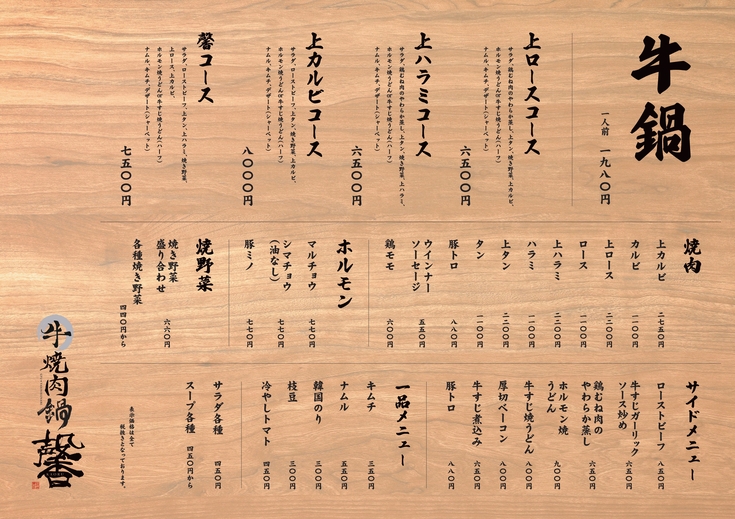 牛鍋
一人前 一九八〇円
上ロースコース
サラダ、鶏むね肉のやわらか蒸し、上タン、焼き野菜、上カルビ、
ホルモン焼うどんor牛すじ焼うどん(ハーフ)
ナムル、キムチ、デザート(シャーベット)
六五〇〇円
上ハラミコース
サラダ、鶏むね肉のやわらか蒸し、上タン、焼き野菜、上ハラミ、
ホルモン焼うどんor牛すじ焼うどん(ハーフ)
ナムル、キムチ、デザート(シャーベット)
六五〇〇円
上カルビコース
サラダ、ローストビーフ、上タン、焼き野菜、上カルビ、
ホルモン焼うどんor牛すじ焼うどん(ハーフ)
ナムル、キムチ、デザート(シャーベット)
八〇〇〇円
馨コース
サラダ、ローストビーフ、上タン、上ハラミ、焼き野菜、
上ロース、上カルビ、
ホルモン焼うどんor牛すじ焼うどん(ハーフ)
ナムル、キムチ、デザート(シャーベット)
七五〇〇円
焼肉
上カルビ 二七五〇円
カルビ 一一〇〇円
上ロース 二二〇〇円
ロース 一一〇〇円
上ハラミ 二二〇〇円
ハラミ 一一〇〇円
上タン 二二〇〇円
タン 一一〇〇円
豚トロ 八八〇円
ウインナー
ソーセージ 五五〇円
鶏モモ 六〇〇円
ホルモン
マルチョウ 七七〇円
シマチョウ
(油なし) 七七〇円
豚ミノ 七七〇円
焼野菜
焼き野菜
盛り合わせ 六六〇円
各種焼き野菜 四四〇円から
サイドメニュー
ローストビーフ 八五〇円
牛すじガーリック
ソース炒め 六五〇円
鶏むね肉の
やわらか蒸し 六五〇円
ホルモン焼
うどん 九〇〇円
牛すじ焼うどん 八〇〇円
厚切ベーコン 八〇〇円
牛すじ煮込み 六五〇円
豚トロ 八八〇円
一品メニュー
キムチ 三五〇円
ナムル 五五〇円
韓国のり 三〇〇円
枝豆 三〇〇円
冷やしトマト 四五〇円
サラダ各種 四五〇円
スープ各種 四五〇円から
表示価格は全て
税抜きとなっております。
牛焼肉鍋 馨